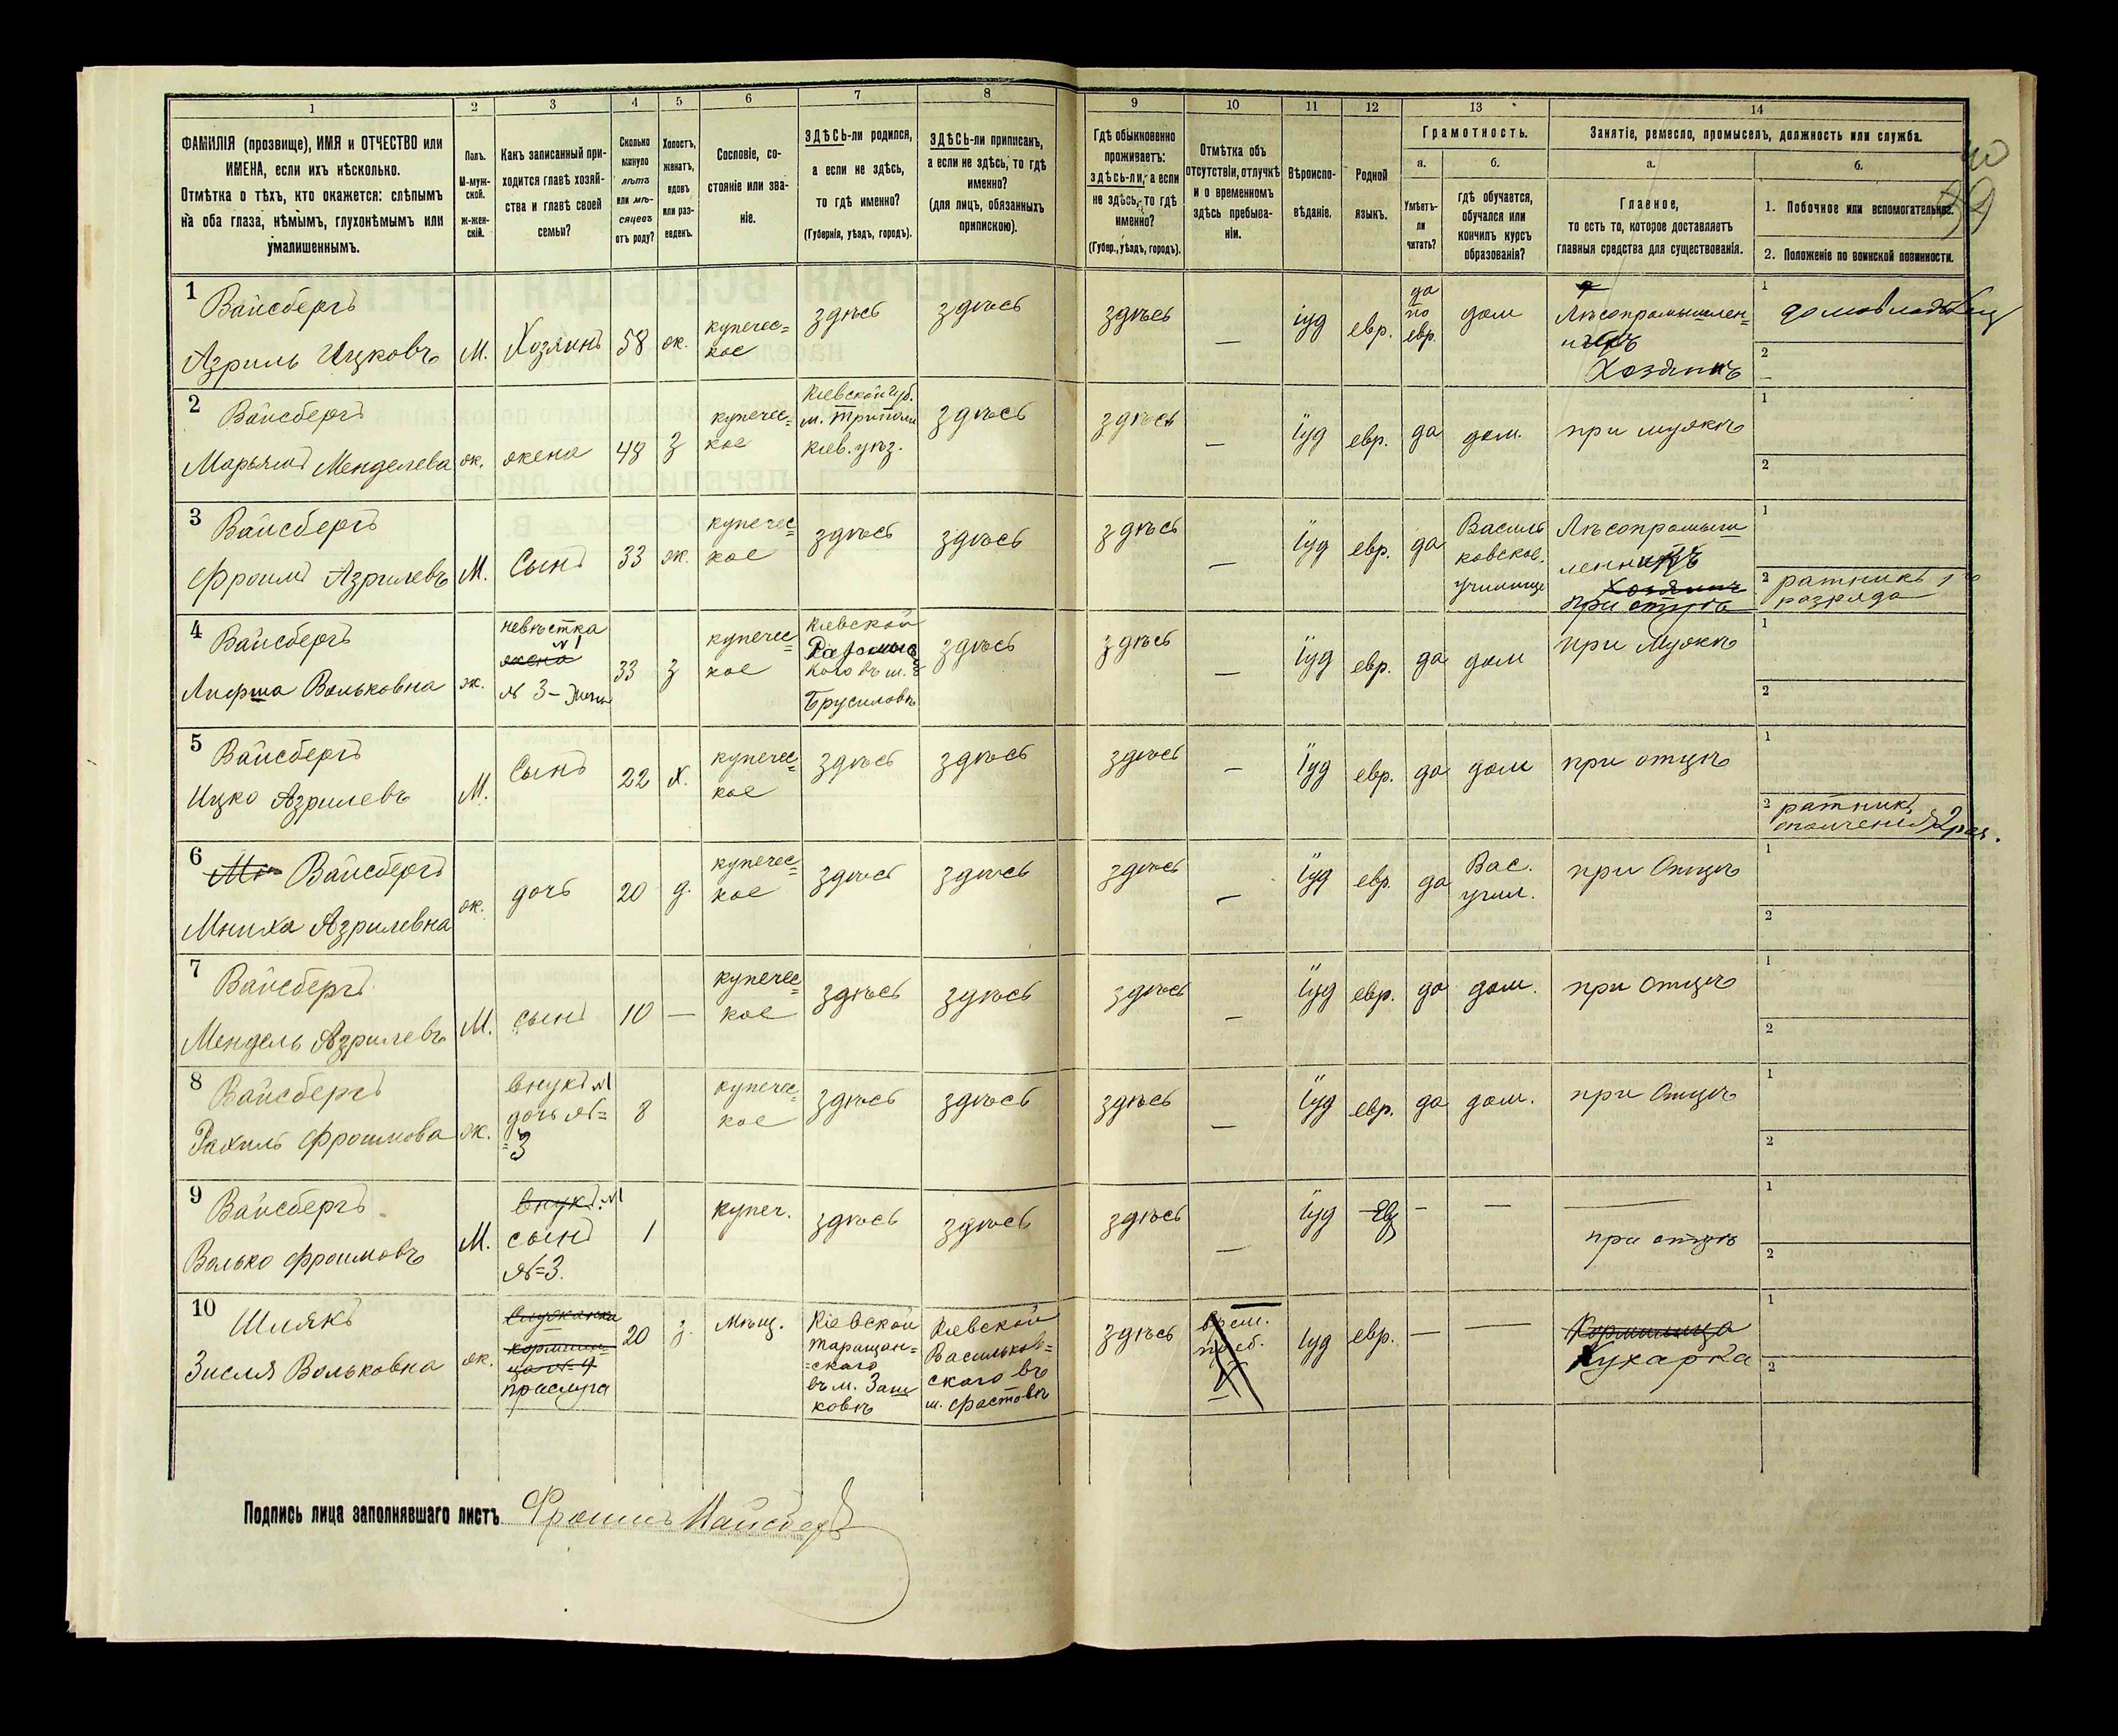 1
2
3
4
5
6
7
8
9
10
11
12
13
14
ФАМИЛІЯ (прозвище), ИМЯ и ОТЧЕСТВО или
ИМЕНА, если ихъ нѣсколько.
Отмѣтка о тѣхъ, кто окажется: слѣпымъ
на оба глаза, нѣмымъ, глухонѣмымъ или
умалишеннымъ.
Полъ.
М-муж-
ской.
ж-жен-
скій.
Какъ записанный при-
ходится главѣ хозяй-
ства и главѣ своей
семьи?
Сколько
минуло
лѣтъ
или мѣ-
сяцевъ
отъ роду?
Холостъ,
женатъ,
вдовъ
или раз-
веденъ.
Сословіе, со-
стояніе или зва-
ніе.
ЗДѢСЬ-ли родился,
а если не здѣсь,
то гдѣ именно?
(Губернія, уѣздъ, городъ).
ЗДѢСЬ-ли приписанъ,
а если не здѣсь, то гдѣ
именно?
(для лицъ, обязанныхъ
припискою).
Гдѣ обыкновенно
проживаетъ:
здѣсь-ли, а если
не здѣсь, то гдѣ
именно?
(Губер., уѣздъ, городъ).
Отмѣтка объ
отсутствіи, отлучкѣ
и о временномъ
здѣсь пребыва-
ніи.
Вѣроиспо-
вѣданіе.
Родной
языкъ.
Грамотность.
а.
б.
Умѣетъ-
ли
читать?
гдѣ обучается,
обучался или
кончилъ курсъ
образованія?
Занятіе, ремесло, промыселъ, должность или служба.
а.
б.
Главное,
то есть то, которое доставляетъ
главныя средства для существованія.
1. Побочное или вспомогательное.
2. Положеніе по воинской повинности.
1
Вайсбергъ
Азриль Ицковъ
М.
Хозяинъ
58
ж.
купечес=
кое
здѣсь
здѣсь
здѣсь
—
іуд
евр.
да
по
евр.
дом
Лѣсопромышлен=
Хозяинъ
1
домовладѣлец
2
—
2
Вайсбергъ
Марьямъ Менделева
ж.
жена
48
з
купечес=
кое
Кіевской губ.
м. Триполи
Кіев. уѣз.
здѣсь
здѣсь
—
Іуд
евр.
да
дом.
при мужѣ
1
2
3
Вайсбергъ
Фроимъ Азрилевъ
М.
Сынъ
33
ж.
купечес=
кое
здѣсь
здѣсь
здѣсь
—
Іуд
евр.
да
Василь
ковское
училище
Лѣсопромыш
ленникъ
Хозяинъ
1
2 ратникъ 1го
разряда
4
Вайсбергъ
Лифша Вольковна
ж.
невѣстка
№1
жена
№ 3 – жена
33
з
купечес=
кое
Кіевской
Брусиловѣ
здѣсь
здѣсь
—
Іуд
евр.
да
дом
при Мужѣ
1
2
5
Вайсбергъ
Ицко Азрилевъ
М.
Сынъ
22
х.
купечес=
кое
здѣсь
здѣсь
здѣсь
—
Іуд
евр.
да
дом
при отцѣ
1
2 ратникъ
ополченія 2 раз.
6
Вайсбергъ
Мниха Азрилевна
ж.
дочь
20
д.
купечес=
кое
здѣсь
здѣсь
здѣсь
—
Іуд
евр.
да
Вас.
учил.
при Отцѣ
1
2
7
Вайсбергъ
Мендель Азрилевъ
М.
сынъ
10
—
купечес=
кое
здѣсь
здѣсь
здѣсь
—
Іуд
евр.
да
дом.
при Отцѣ
1
2
8
Вайсбергъ
Рахиль Фроимова
ж.
внукъ №1
дочь №=
=3
8
купечес=
кое
здѣсь
здѣсь
здѣсь
—
Іуд
евр.
да
дом.
при Отцѣ
1
2
9
Вайсбергъ
Волько Фроимовъ
М.
внукъ №1
сынъ
№=3.
1
купеч.
здѣсь
здѣсь
здѣсь
—
Іуд
Евр
—
—
при отцѣ
1
2
10
Шлякъ
Зисля Вольковна
ж.
служанка
прислуга
20
з.
Мѣщ.
Кіевской
Таращан=
=скаго
въ м. Заш
ковѣ
Кіевской
Васильков=
скаго въ
м. Фастовѣ
здѣсь
врем.
преб.
Іуд
евр.
—
—
Кормилица
Кухарка
1
2
Подпись лица заполнявшаго листъ Фроимъ Вайсбергъ